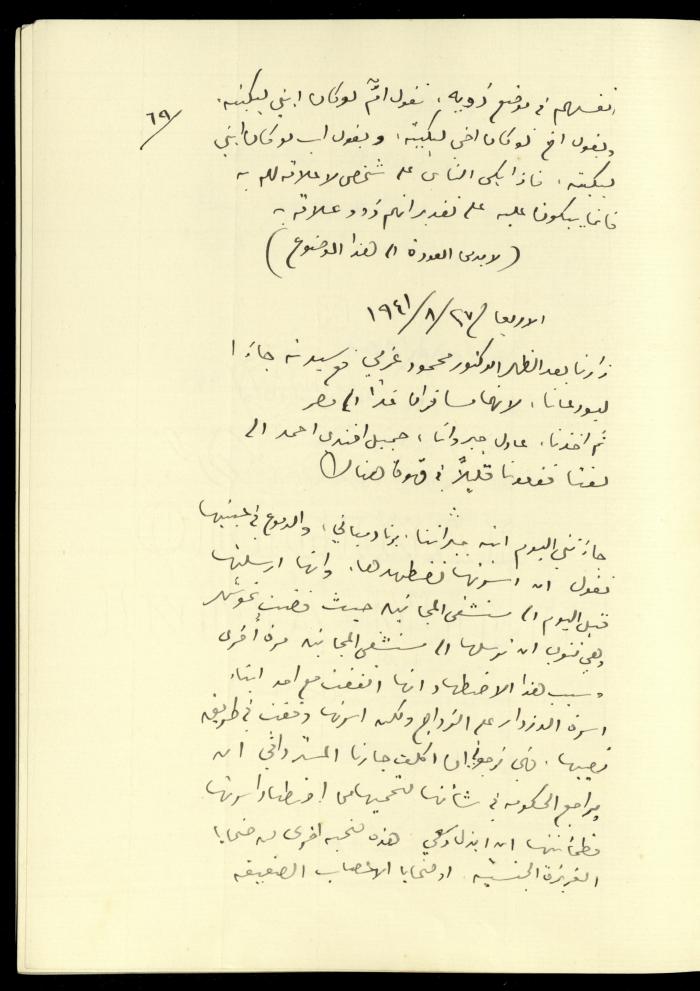 ٦٩/
انفسهم في موضع ذويه، تقول امٌّ لو كان ابني لبكيته.
ويقول اخ لو كان اخي لبكيته، ويقول اب لو كان ابني
لبكيته. فاذا بكى الناس على شخص لا علاقة لهم به
فانما يبكون عليه على تقدير انهم ذوو علاقة به
(لا بد من العودة الى هذا الموضوع)
الاربعاء ٢٧/٨/١٩٤١
زارنا بعد الظهر الدكتور محمود عزمي مع سيدته جاءا
ليودعانا، لانهما مسافران غداً الى مصر
ثم اخذنا، عادل جبر وانا، جميل افندي احمد الى
لفتا فقعدنا قليلاً في قهوة هناك
جاءتني اليوم ابنة جيراننا، والدموع في عينيها
تقول ان اسرتها تضطهدها، وانها ارسلتها
قبل اليوم الى مستشفى المجانين حيث قضت نحو شهر
وهي تنوي ان ترسلها الى مستشفى المجانين مرة أخرى
وسبب هذا الاضطهاد انها اتفقت مع احد ابناء
اسرة الدزدار على الزواج ولكن اسرتها وقفت في طريق
نصيبها. فهي ترجو ان اكلف جارنا المستر ان
يراجع الحكومة في شأنها لتحميها من اضطهاد اسرتها
فطمأنتها ان ابذل وسعي هذه ضحية اخرى من ضحايا
الغريزة الجنسية. او ضحايا الاعصاب الضعيفة